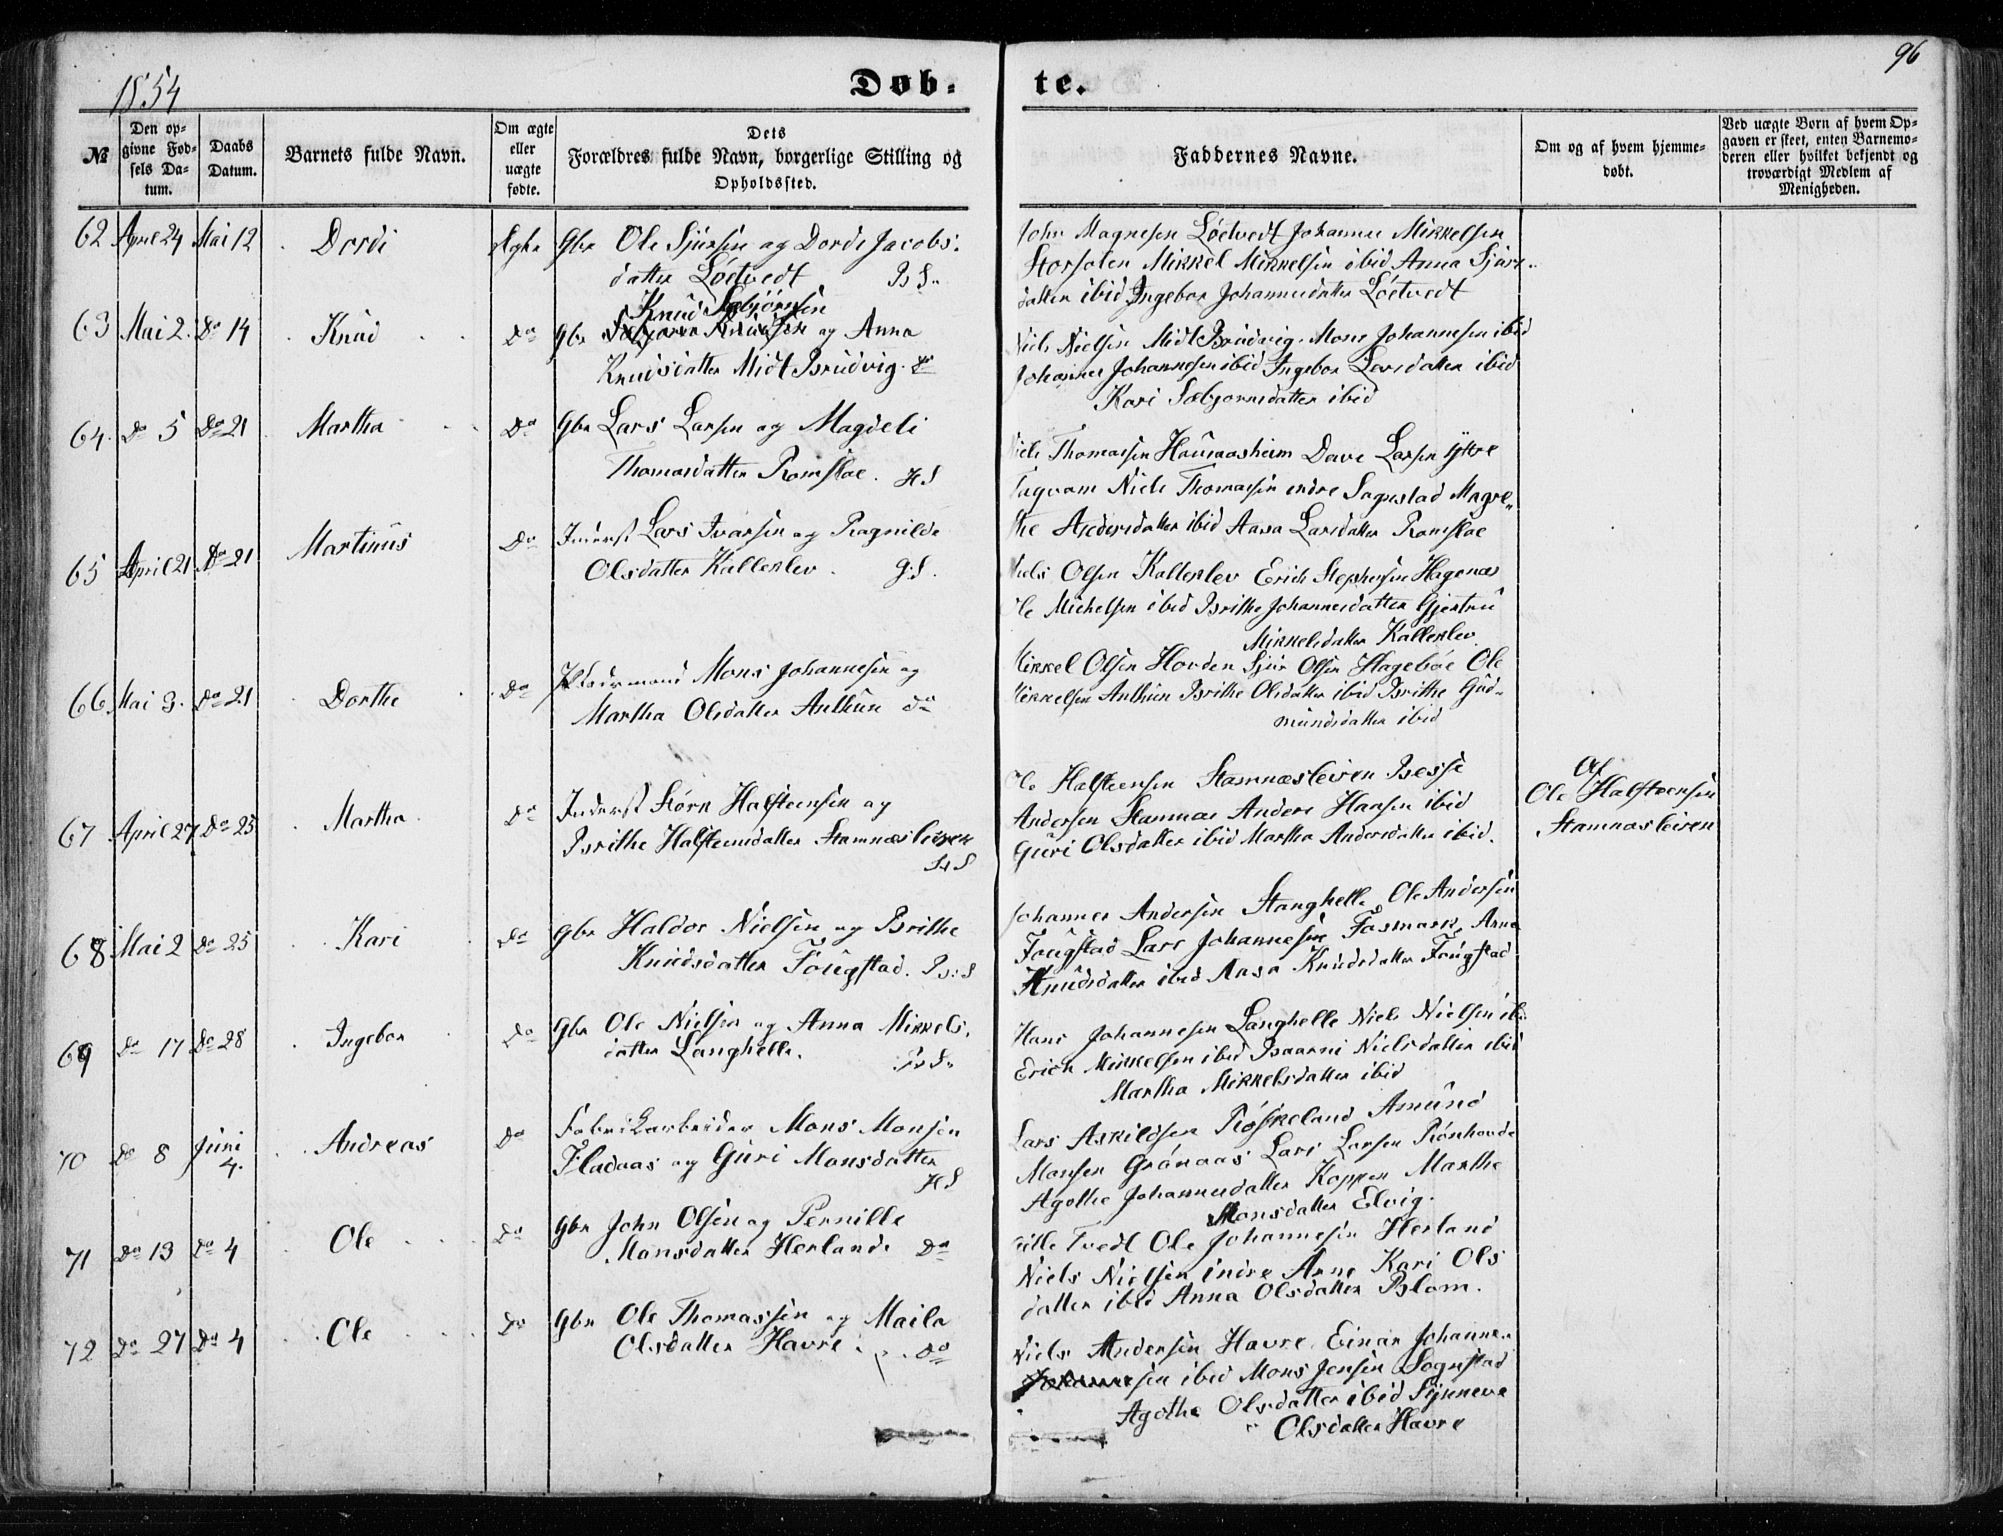 1854
96
Døb-
te.
№
Den op-
givne Fød-
sels Da-
tum.
Daabs
Datum.
Barnets fulde Navn.
Om ægte
eller
uægte
fødte.
Dets
Forældres fulde Navn, borgerlige Stilling og
Opholdssted.
Faddernes Navne.
Om og af hvem hjemme-
døbt.
Ved uægte Børn af hvem Op-
gaven er skeet, enten Barnemo-
deren eller hvilket bekjendt og
troværdigt Medlem af
Menigheden.
62 April 24 Mai 12 Dordi Ægte Gbr Ole Sjursen og Dorde Jacobs-
datter Lødtvedt B S.
John Magnesen Lødtvedt Johannes Mikkelsen
Mikkel Mikkelsen ibid Anna Sjurs-
datter ibid Ingebor Johannesdatter Lødtvedt
63 Mai 2. Do 14 Knud Do Knud Sæbjørnsen
Gbr og Anna
Knudsdatter Midt Brudvig. Do
Niels Nielsen Midt Brudvig. Mons Johannesen ibid
Johannes Johannesen ibid Ingebor Larsdatter ibid
Kari Sæbjørnsdatter ibid
64. Do 5 Do 21 Martha Do Gbr Lars Larsen og Magdeli
Thomasdatter Romsloe. H S
Niels Thomassen Dave Larsen Ytre
Niels Thomassen indre Magre-
the Andersdatter ibid Aasa Larsdatter Romsloe
65 April 21 Do 21 Martinus Do Inderst Lars Ivarsen og Ragnilde
Olsdatter Kallerlev. G.S.
Niels Olsen Kallerlev Erich Stephensen Hagenæs
Ole Michelsen ibid Brithe Johannesdatter Gjertru
Mikkelsdatter Kallerlev
66. Mai 3. Do 21 Dorthe Do Mons Johannesen og
Martha Olsdatter Anthun do
Mikkel Olsen Hovden Sjur Olsen Hagebøe Ole
Mikkelsen Anthun Brithe Olsdatter ibid Brithe Gud-
mundsdatter ibid
67 April 27 Do 25 Martha Do Inderst Størk Halsteensen og
Brithe Halsteensdatter Stamnæsleiren
H S
Ole Halsteensen Stamnæsleiren Besse
Andersen Stamnæs Anders Hansen ibid
Guri Olsdatter ibid Martha Andersdatter ibid.
Af
Ole Halsteensen
Stamnæsleiren
68 Mai 2 Do 25 Kari Do Gbr Haldor Nielsen og Brithe
Knudsdatter Fougstad. B: S
Johannes Andersen Stanghelle Ole Andersen
Fougstad Lars Johannesen Fosmark Anna
Knudsdatter ibid Aasa Knudsdatter Fougstad
69 Do 17 Do 28 Ingebor Do Gbr Ole Nielsen og Anna Mikkels-
datter Langhelle. B S.
Hans Johannesen Langhelle Niels Nielsen ib.
Erich Mikkelsen ibid Baarni Nielsdatter ibid
Martha Mikkelsdatter ibid
70 Do 8 Juni
4. Andreas Do Fabrikarbeider Mons Monsen
Fladaas og Guri Monsdatter
H S
Lars Askildsen Røskeland Amund
Monsen Grønaas Lars Larsen Rønhovde
Agothe Johannesdatter Koppen Marthe
Monsdatter Elvig.
71 Do 13 Do 4 Ole Do Gbr John Olsen og Pernille
Monsdatter Herland. Do
Tvedt Ole Johannesen Herland
Niels Nielsen indre Arne Kari Ols
datter ibid Anna Olsdatter Blom.
72 Do 27 Do 4 Ole Do Gbr Ole Thomassen og Maila
Olsdatter Havre. Do
Niels Andersen Havre. Einar Johanne-
sen ibid Mons Jensen Sognstad
Agothe Olsdatter ibid Synneve
Olsdatter Havre